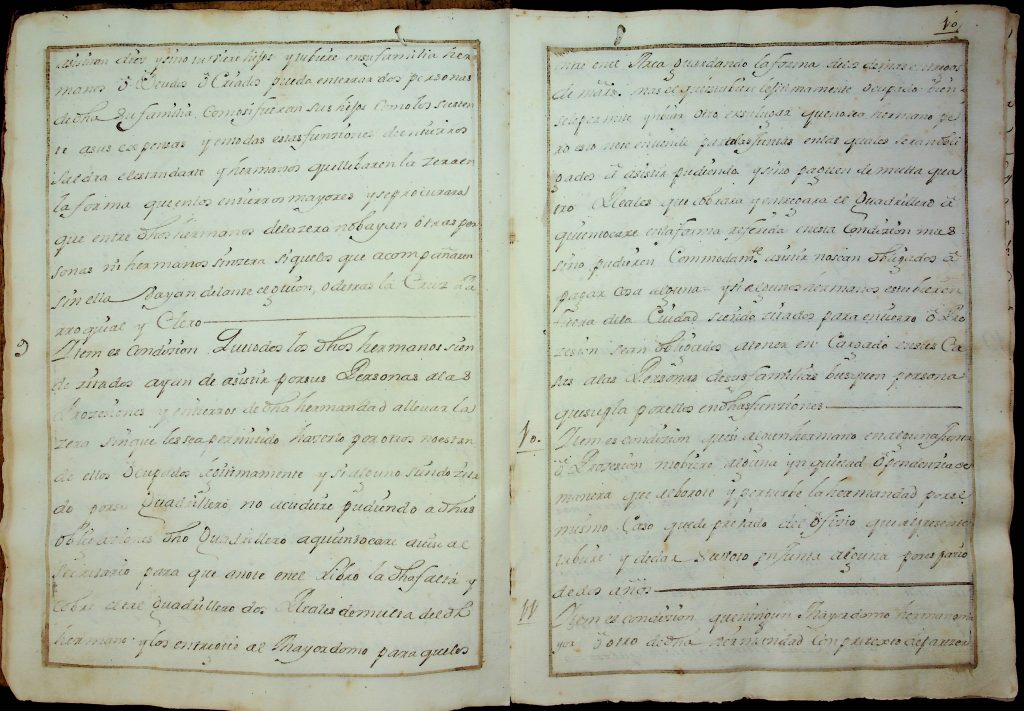 asistion dies y sino tuviere hijos y tubiere en su familia her
manos ô Deudos ô Criados pueda enterrar dos personas
de dha su familia, como si fueran sus hijos como los susten
te a sus expensas y en todas estas funsiones de entierros
saldra el estandarte y hermanos que llebaren la zera en
la forma que en los entierros mayores y se procurara
que entre dhos hermanos de la zera no bayan otras per
sonas ni hermanos sin zera si que los que acompañaren
sin ella bayan delante el guion, o detras la Cruz Pa
rroquial y Clero
9
Ytem es Condision Que todos los dhos hermanos sien
do sitados ayan de asistir por sus Personas a las
Prozesiones y entierros de dha hermandad a llevar la
zera sin que les sea permitido hazerlo por otros no estan
do ellos Ocupados lexitimamente y si alguno siendo zita
do por su Quadrillero no acudiere pudiendo a dhas
obligaciones dho Quadrillero a quien tocare avise al
secretario para que anote en el Libro la dha falta y
cobre el tal Quadrillero dos Reales de multa de el dho
hermano y los entregue al Mayordomo para que los
10
entre en el Arca guardando la forma
de mas el que estubiere lexitimamente ocupado bien
se le permite ynbiar otro en su lugar que no sea hermano pe
ro esto no se entiende para las Juntas en las quales seran obli
gados â asistir pudiendo y sino paguen de multa qua
tro Reales que cobrara y entregara el Quadrillero â
quien tocare en la forma referida en esta Condision mas
sino pudieren Commodamte asistir no sean obligados â
pagar cosa alguna y si algunos hermanos estubieren
fuera de la Ciudad siendo sitados para entierro ô Pro
zesion sean obligados a tener en Cargado en sus Ca
sas a las Personas de sus familias busquen persona
que supla por ellos en dhas funziones
10.
Ytem es condision que si algun hermano en alguna Junta
ô Prosesion mobiere alguna ynquietud ô pendenzia de
manera que alborote y perturbe la hermandad por el
mismo Caso quede privado del ofisio que al presente
tubiere y de dar su voto en Junta alguna por espazio
de dos años
11
Ytem es condision que ningun Mayordomo hermano ma
yor ô otro de dha hermandad con pretexto de